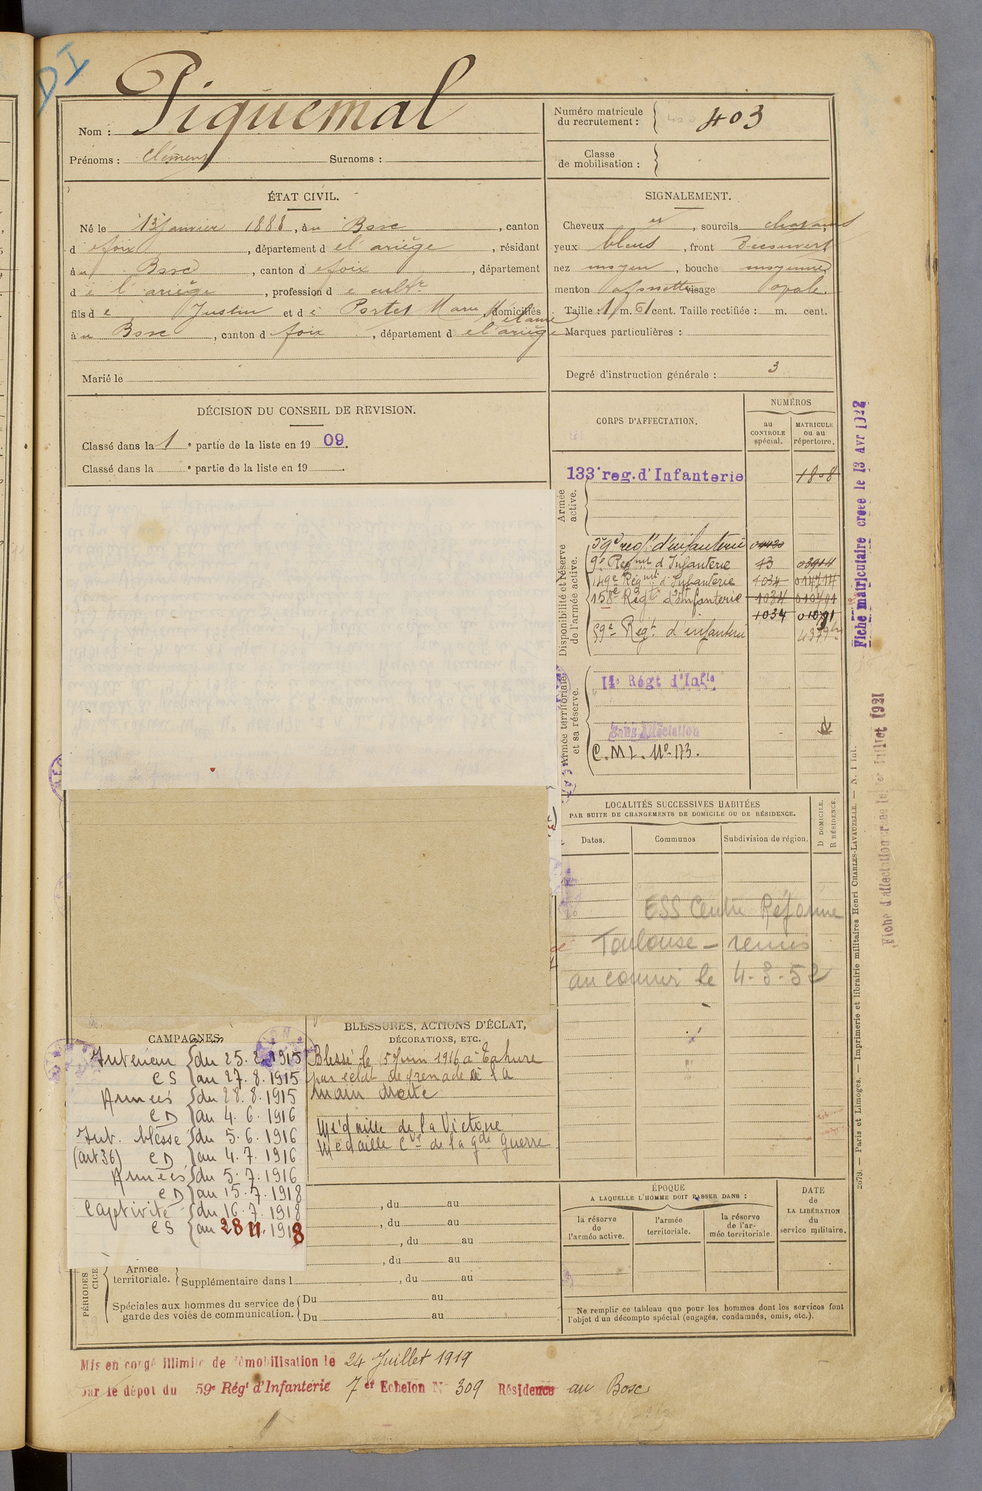 DI
Nom : Piquemal
Prénoms : Clément Surnoms :
Numéro matricule du recrutement : 403
Classe de mobilisation :
ÉTAT CIVIL.
Né le 13 janvier 1888, à u Bosc, canton
d e foix, département d e l'ariège, résidant
à u Bosc, canton d e foix, département
d e l'ariège, profession d e cultr
fils d e Justin et d e Portet Marie domiciliés
à u Bosc, canton d foix, département d e l'ariège
Marié le
SIGNALEMENT.
Cheveux et, sourcils chatains
yeux bleus, front Découvert
nez moyen, bouche moyenne
menton à fossette visage ovale.
Taille : 1 m. 61 cent. Taille rectifiée : m. cent.
Marques particulières :
Degré d'instruction générale : 3
DÉCISION DU CONSEIL DE REVISION.
Classé dans la 1e partie de la liste en 1909.
Classé dans la e partie de la liste en 19 .
CORPS D'AFFECTATION.
NUMÉROS
au CONTROLE spécial.
MATRICULE ou au répertoire.
Armée active.
133e reg. d'Infanterie 1808
Disponibilité et réserve de l'armée active.
59e regt d'infanterie
9e Regmt d'Infanterie 43
149e Regmt d'Infanterie 1034 014714
158e Régt d'Infanterie 1034 010701
1034
59e Regt d'infanterie
Armée territoriale et sa réserve.
14e Régt d'Infie
Sans Affectation
C.M.I. No 173.
LOCALITÉS SUCCESSIVES HABITÉES
PAR SUITE DE CHANGEMENTS DE DOMICILE OU DE RÉSIDENCE.
Dates. Communes Subdivision de région. D DOMICILE. R RÉSIDENCE.
ESS Centre Réforme
Toulouse – remis
au courrier le 4-3-52
CAMPAGNES.
Intérieur du 25.2.1915
CS au 27.8.1915
Armées du 28.8.1915
CD au 4.6.1916
Int. blessé du 5.6.1916
(art 36) CD au 4.7.1916
Armées du 5.7.1916
CD au 15.7.1918
Captivité du 16.7.1918
CS au 28 11.1918
BLESSURES, ACTIONS D'ÉCLAT,
DÉCORATIONS, ETC.
Blessé le 5 Juin 1916 à Tahure
par éclat de grenade à la
main droite
Médaille de la Victoire
Médaille Cve de la gde Guerre
, du au
, du au
, du au
, du au
PÉRIODES
Armée territoriale. Supplémentaire dans l , du au
Spéciales aux hommes du service de garde des voies de communication. Du au
Du au
ÉPOQUE
A LAQUELLE L'HOMME DOIT PASSER DANS :
la réserve de l'armée active.
l'armée territoriale.
la réserve de l'armée territoriale
DATE de LA LIBÉRATION du service militaire.
Ne remplir ce tableau que pour les hommes dont les services font
l'objet d'un décompte spécial (engagés, condamnés, omis, etc.).
Mis en congé illimité de démobilisation le 24 Juillet 1919
par le dépôt du 59e Régt d'Infanterie 7e Echelon No 309 Résidence au Bosc
Fiche matriculaire créée le 13 Avr 1922
Fiche d'affectation créée le Juillet 1921
2679. — Paris et Limoges. — Imprimerie et librairie militaires Henri CHARLES-LAVAUZELLE. — N. 1 int.